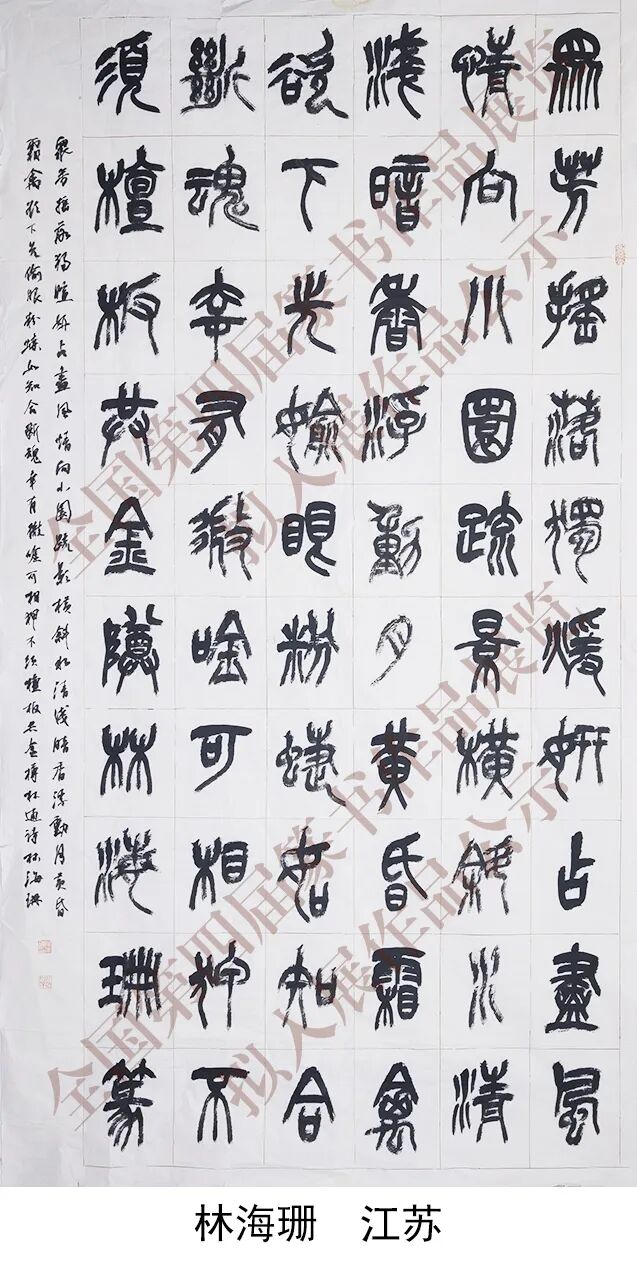 眾芳搖落獨煖妍占盡風
情向小園疏景橫斜水清
淺暗香浮動月黃昏霜禽
欲下先媮眼粉蜨如知合
斷魂幸有微吟可相狎不
須檀板共金尊林海珊篆
眾芳搖落獨暄妍占盡風情向小園疏影橫斜水清淺暗香浮動月黃昏
霜禽欲下先偷眼粉蝶如知合斷魂幸有微吟可相狎不須檀板共金樽林逋詩林海珊
全国第四届篆书作品展览
拟入展作品公示
全国第四届篆书作品展览
拟入展作品公示
林海珊 江苏